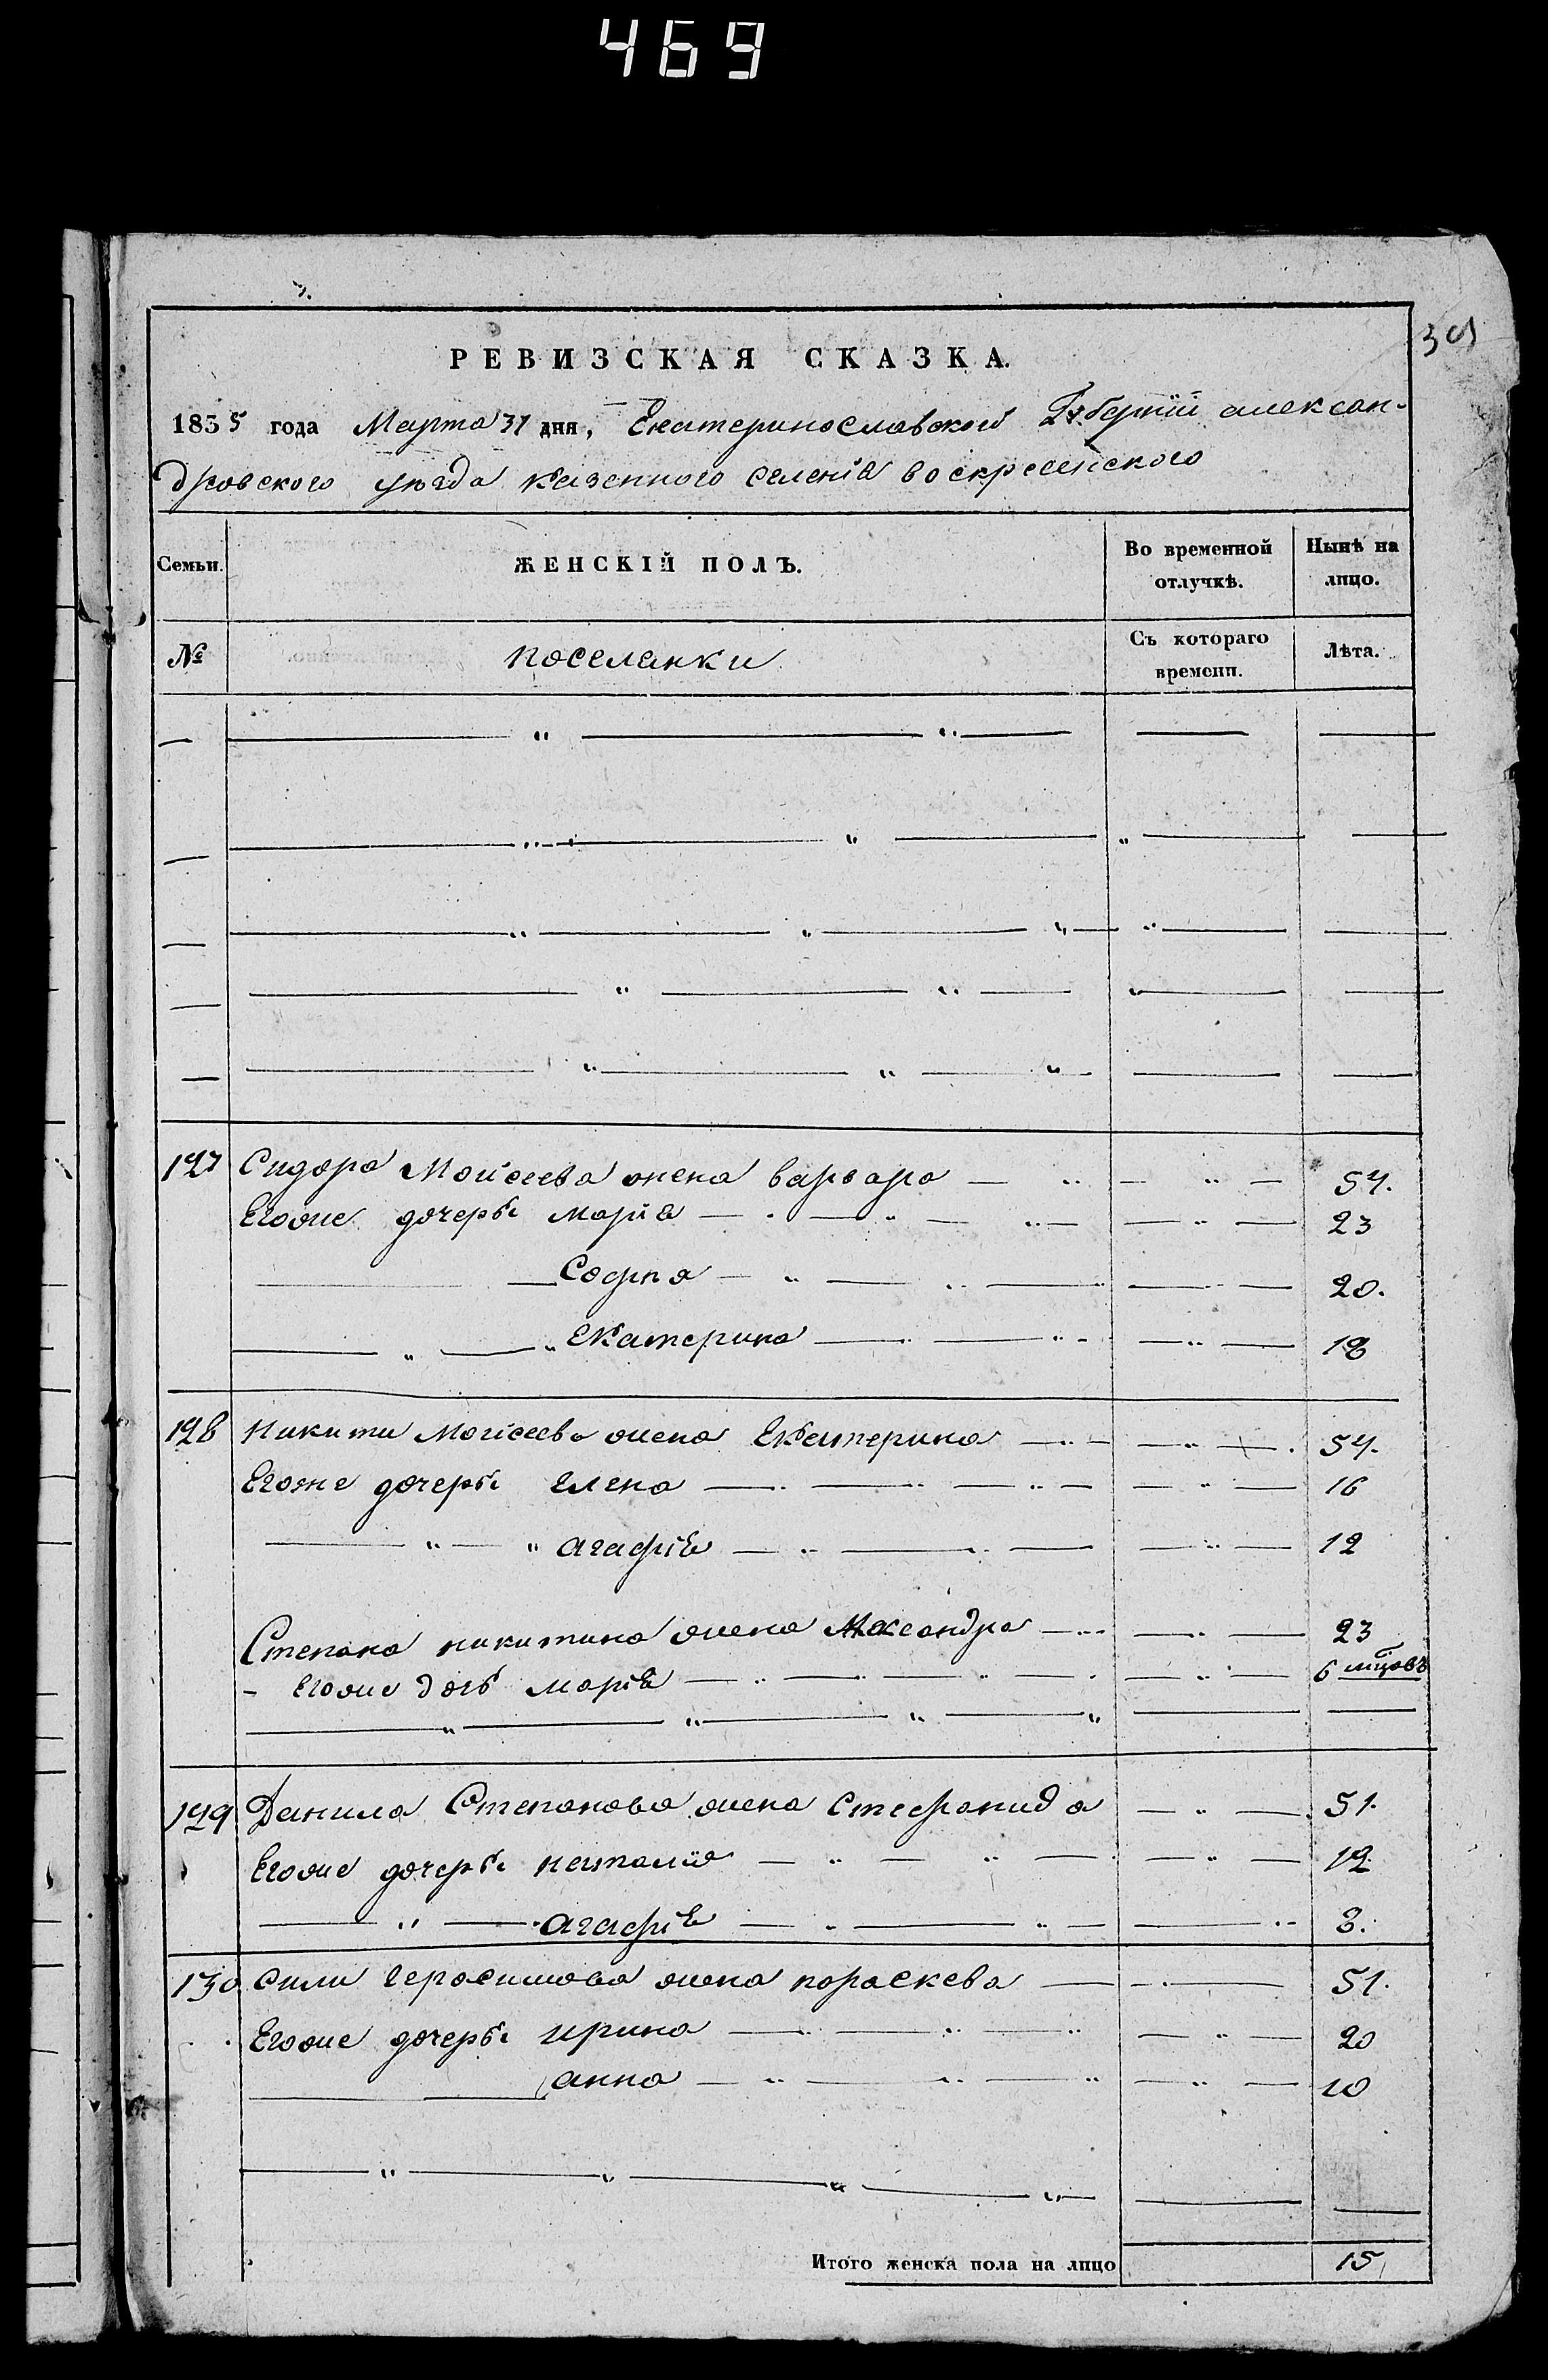 469
РЕВИЗСКАЯ СКАЗКА.
1835 года Марта 31 дня, Екатеринославской Губернїи алексан-
дровского уѣзда казенного селенїя воскресенского
Семьи. ЖЕНСКІЙ ПОЛЪ. Во временной отлучкѣ. Нынѣ на лицо.
№ поселянки Съ котораго времени. Лѣта.
127 Сидора Моисеева жена варвара 54.
Егоже дочеры марїя 23
София 20.
Екатерина 18
128 Никиты Моисеева жена Екатерина 54.
Егоже дочеры елена 16
" " агафїя 12
Степана никитина жена Александра 23
- Егоже дочь марїя 6 мцовъ
129 Данила Степанова жена Стефанида 51.
Егоже дочеры наталїя 12
агафїя 8.
130 Силы герасимова жена пораскева 51.
Егоже дочеры ирина 20
анна 10
Итого женска пола на лицо 15